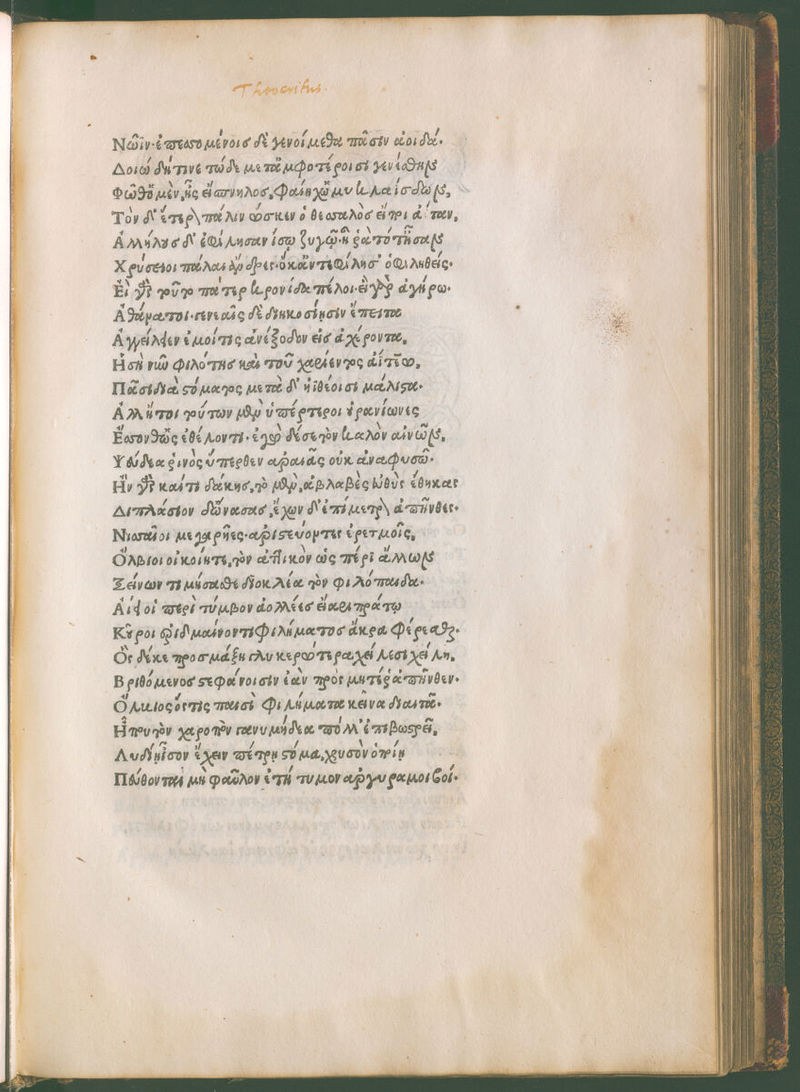 Theocritus.
Νῶϊν· ἐπεσσομένοις δὲ γενοίμεθα πᾶσιν ἀοιδά·
Δοιώ δή τινε τώδε μετ' ἀμφοτέροισι γενέσθην
Φῶθ' ὁ μὲν, ἧς εἴσπνηλος, φαίη χ' ὠμυκλαΐσδων,
Τὸν δ' ἕτερον πάλιν ὥς κεν ὁ θεσσαλὸς εἴποι ἀΐταν,
Ἀλλήλους δ' ἐφίλησαν ἴσῳ ζυγῷ· ἦ ῥα τότ' ἦσαν
Χρύσειοι πάλαι ἄνδρες· ὅκ' ἀντεφίλησ' ὁ φιληθείς·
Εἰ γὰρ τοῦτο πάτερ κρονίδα πέλοι· εἰ γὰρ ἀγήρω·
Ἀθάνατοι· γενεαῖς δὲ διηκοσίησιν ἔπειτα
Ἀγγείλειεν ἐμοί τις ἀνέξοδον εἰς ἀχέροντα,
Ἡ σὴ νῦν φιλότης καὶ τοῦ χαρίεντος ἀΐτεω,
Πᾶσι διὰ στόματος μετὰ δ' ἠϊθέοισι μάλιστα·
Ἀλλ' ἤτοι τούτων μὲν ὑπέρτεροι οὐρανίωνες
Ἔσσονθ' ὡς ἐθέλοντι· ἐγὼ δέ σε τὸν καλὸν αἰνῶν,
Ψεύδεα ῥινὸς ὕπερθεν ἀραιᾶς οὐκ ἀναφυσῶ·
Ἢν γὰρ καί τι δάκης, τὸ μὲν, ἀβλαβὲς εὐθὺς ἔθηκας
Διπλάσιον δ' ὤνασας, ἔχων δ' ἐπίμετρον ἀπῆνθες·
Νισαῖοι μεγαρῆες· ἀριστεύοντες ἐρετμοῖς,
Ὄλβιοι οἰκοίητε, τὸν ἀττικὸν ὡς πέρι ἄλλων
Ξείνων τιμήσασθε διοκλέα τὸν φιλόπαιδα·
Αἰεί οἱ περὶ τύμβον ἀολλέες εἴαρι πράτῳ
Κοῦροι ἐριδμαίνοντι φιλήματος ἄκρα φέρεσθαι·
Ὃς δέ κε προσμάξη γλυκερώτερα χείλεσι χείλη,
Βριθόμενος στεφάνοισιν ἑὰν πρὸς μητέρ' ἀπῆνθεν·
Ὄλβιος ὅστις παισὶ φιλήματα κεῖνα διαιτᾶ·
Ἦ που τὸν χαροπὸν γανυμήδεα πόλλ' ἐπιβωστρεῖ,
Λυδίη ἶσον ἔχειν πέτρη στόμα, χρυσὸν ὁποίη
Πεύθονται μὴ φαῦλον ἐτήτυμον ἀργυραμοιβοί·